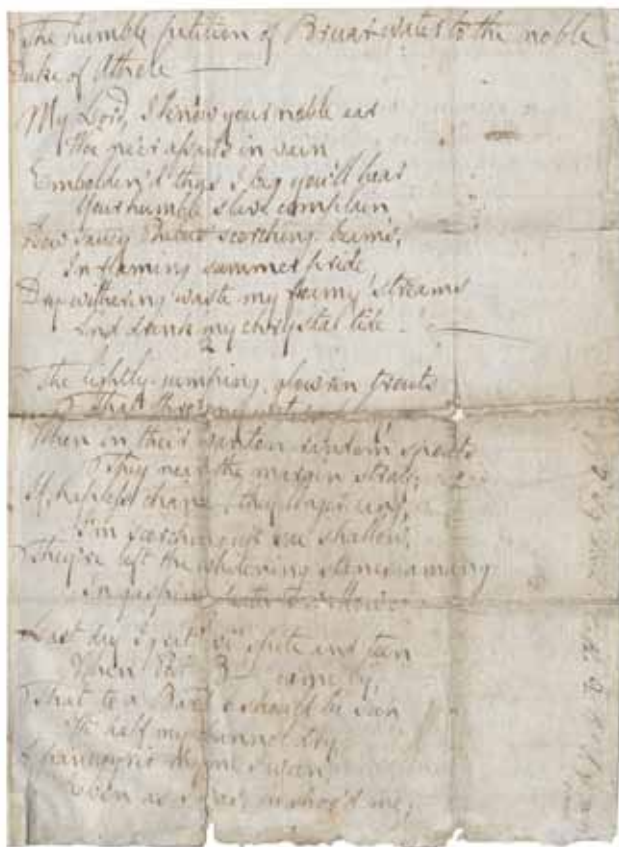 The humble petition of Bruar-water to the noble
Duke of Athole
My Lord, I know your noble ear
Woe ne'er assails in vain
Embolden'd thus I beg you'll hear
Your humble slave complain,
How saucy Phebus' scorching beams,
In flaming summer pride,
Dry-withering waste my foamy streams
And drink my chrystal tide.
The lightly-jumping, glowrin trouts
That thro' my
When in their wanton random sports
They near the margin stray;
If, hapless chance, they linger lang,
I'm scorching up sae shallow,
They're left the whitening stanes amang
In gasping
Last day I grat wi' spite and teen
When Poet B— came by,
That to a Bard I should be seen
Wi' half my channel dry
A panegyric rhyme I ween
Even as I was, he